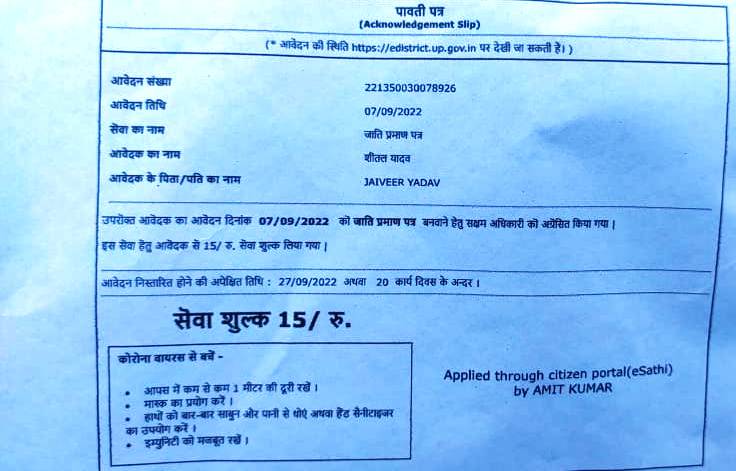 पावती पत्र
(Acknowledgement Slip)
(* आवेदन की स्थिति https://edistrict.up.gov.in पर देखी जा सकती है। )
आवेदन संख्या 221350030078926
आवेदन तिथि 07/09/2022
सेवा का नाम जाति प्रमाण पत्र
आवेदक का नाम शीतल यादव
आवेदक के पिता/पति का नाम JAIVEER YADAV
उपरोक्त आवेदक का आवेदन दिनांक 07/09/2022 को जाति प्रमाण पत्र बनवाने हेतु सक्षम अधिकारी को अग्रेसित किया गया |
इस सेवा हेतु आवेदक से 15/ रु. सेवा शुल्क लिया गया |
आवेदन निस्तारित होने की अपेक्षित तिथि : 27/09/2022 अथवा 20 कार्य दिवस के अन्दर ।
सेवा शुल्क 15/ रु.
कोरोना वायरस से बचें -
• आपस में कम से कम 1 मीटर की दूरी रखें ।
• मास्क का प्रयोग करें ।
• हाथों को बार-बार साबुन और पानी से धोएं अथवा हैंड सैनीटाइजर
का उपयोग करें ।
• इम्युनिटी को मजबूत रखें ।
Applied through citizen portal(eSathi)
by AMIT KUMAR